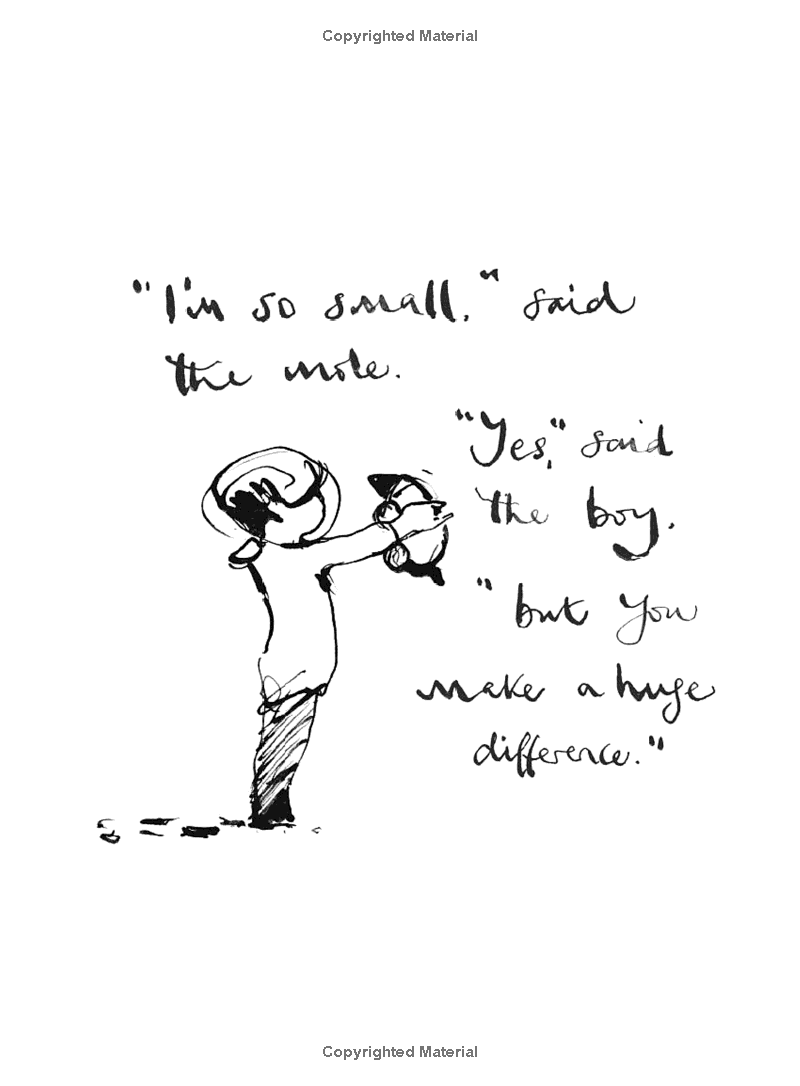 Copyrighted Material
"I'm so small," said
the mole.
"Yes," said
the boy,
"but you
make a huge
difference."
Copyrighted Material